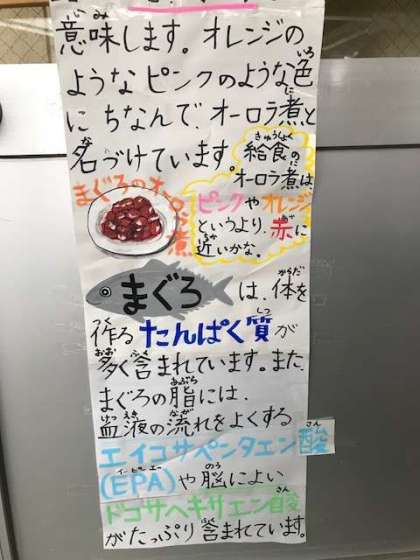 意味します。オレンジの
ような ピンクのような色
に ちなんで、オーロラ煮と
名づけています。
給食の
オーロラ煮は、
ピンクやオレンジ
というより、赤に
近いかな。
まぐろのオーロラ煮
まぐろ は、体を
作る たんぱく質が
多く含まれています。また、
まぐろの脂には、
血液の流れをよくする
エイコサペンタエン酸
(EPA)や脳によい
ドコサヘキサエン酸
がたっぷり含まれています。